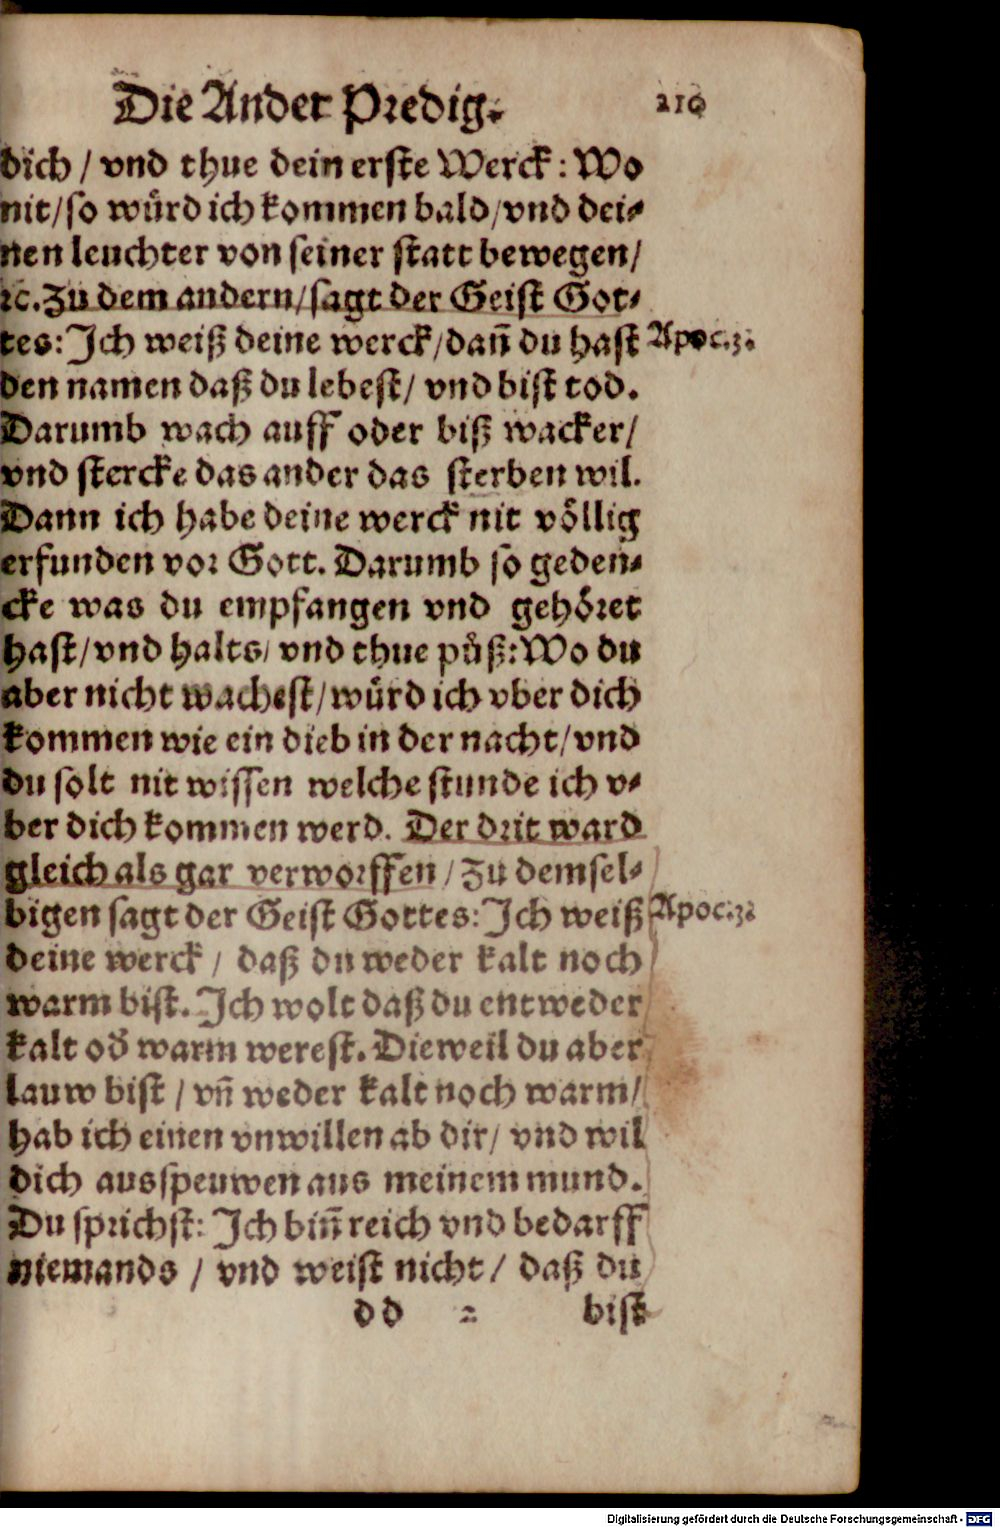 Die Ander Predig. 210
dich / vnd thue dein erste Werck: Wo
nit/so wuͤrd ich kommen bald/vnd dei⸗
nen leuchter von seiner statt bewegen/
ꝛc. Zu dem andern/sagt der Geist Got⸗
tes: Ich weiß deine werck/dañ du hast Apoc.3.
den namen daß du lebest/ vnd bist tod.
Darumb wach auff oder biß wacker/
vnd stercke das ander das sterben wil.
Dann ich habe deine werck nit voͤllig
erfunden vor Gott. Darumb so geden⸗
cke was du empfangen vnd gehoͤret
hast/vnd halts/ vnd thue puͤß: Wo du
aber nicht wachest/wuͤrd ich vber dich
kommen wie ein dieb in der nacht/vnd
du solt nit wissen welche stunde ich v⸗
ber dich kommen werd. Der drit ward
gleich als gar verworffen / Zu demsel⸗
bigen sagt der Geist Gottes: Ich weiß Apoc.3.
deine werck / daß du weder kalt noch
warm bist. Ich wolt daß du entweder
kalt od̃ warm werest. Dieweil du aber
lauw bist / vñ weder kalt noch warm/
hab ich einen vnwillen ab dir/ vnd wil
dich ausspeuwen aus meinem mund.
Du sprichst: Ich biñ reich vnd bedarff
niemands / vnd weist nicht / daß du
dd 2 bist
Digitalisierung gefördert durch die Deutsche Forschungsgemeinschaft - DFG